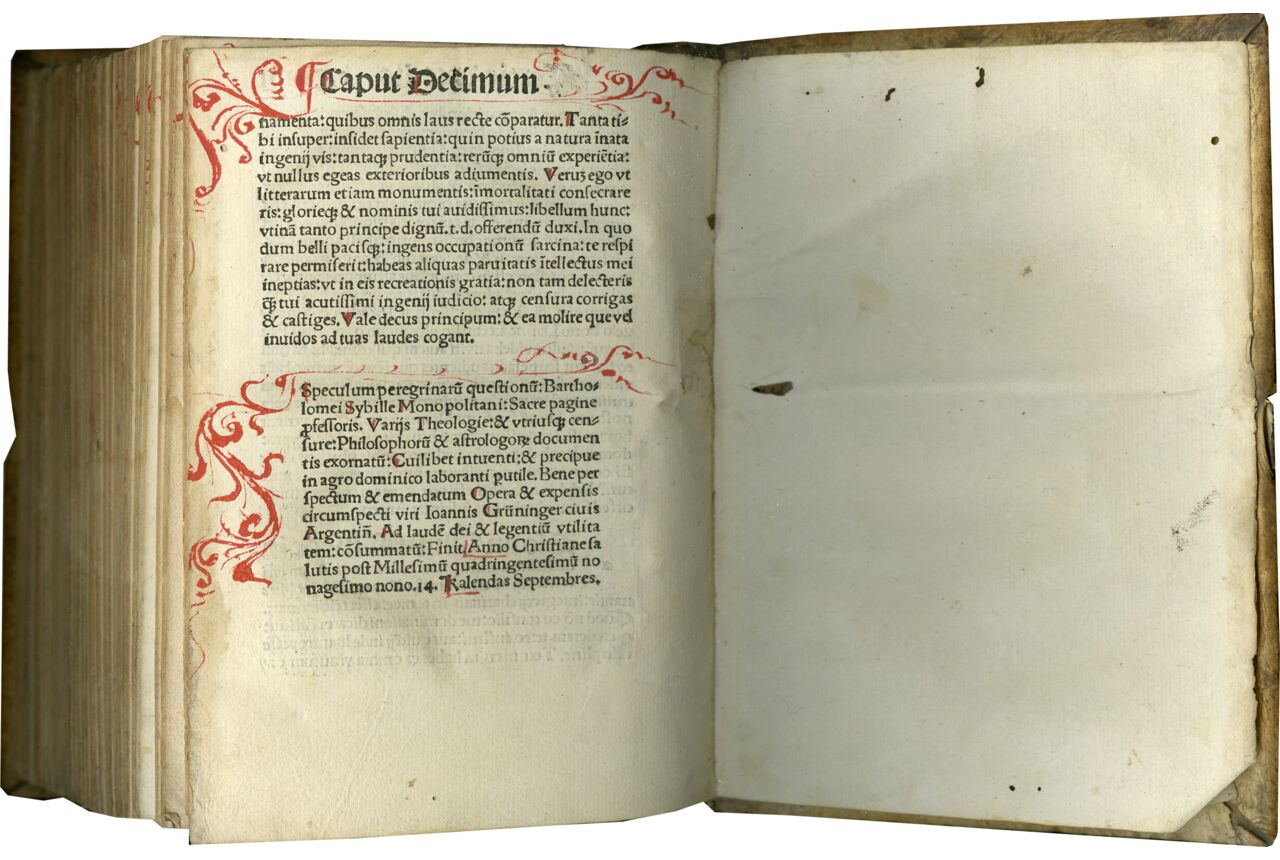 Caput Decimum.
namenta: quibus omnis laus recte cōparatur. Tanta ti⸗
bi insuper: insidet sapientia: quin potius a natura īnata
ingenij vis: tantaqꝫ prudentia: rerūqꝫ omniū experiētia:
vt nullus egeas exterioribus adiumentis. Veruꝫ ego vt
litterarum etiam monumentis: īmortalitati consecrare
ris: glorieqꝫ & nominis tui auidissimus: libellum hunc:
vtinā tanto principe dignū. t. d. offerendū duxi. In quo
dum belli pacisqꝫ: ingens occupationū sarcina: te respi
rare permiserit: habeas aliquas paruitatis ītellectus mei
ineptias: vt in eis recreationis gratia: non tam delecteris
q̄ꝫ tui acutissimi ingenij iudicio: atqꝫ censura corrigas
& castiges. Vale decus principum: & ea molire que vel
inuidos ad tuas laudes cogant.
Speculum peregrinarū questionū: Bartho⸗
lomei Sybille Monopolitani: Sacre pagine
ꝓfessoris. Varijs Theologie: & vtriusqꝫ cen⸗
sure: Philosophorū & astrologoꝝ documen
tis exornatū: Cuilibet intuenti: & precipue
in agro dominico laboranti ꝑutile. Bene per
spectum & emendatum Opera & expensis
circumspecti viri Ioannis Grüninger ciuis
Argentiñ. Ad laudē dei & legentiū vtilita
tem: cōsummatū: Finit Anno Christiane sa
lutis post Millesimū quadringentesimū no
nagesimo nono. 14. Kalendas Septembres.